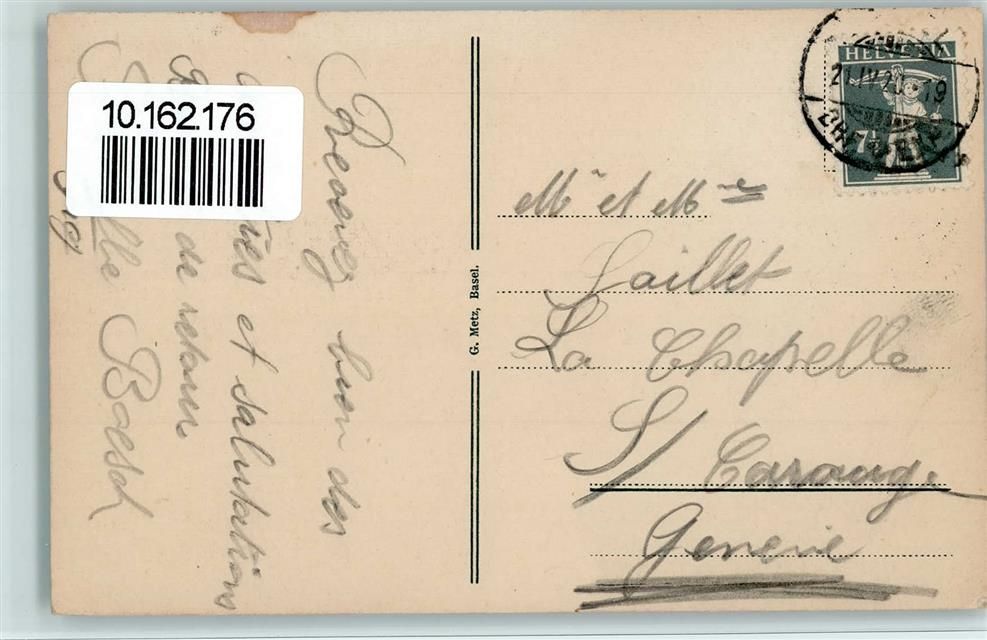 10.162.176
Recevez bien des
et salutations
de retour
Boesch
G. Metz, Basel.
HELVETIA
7½
Mr et Mme
Gaillet
La Chapelle
S/ Carouge
Genève